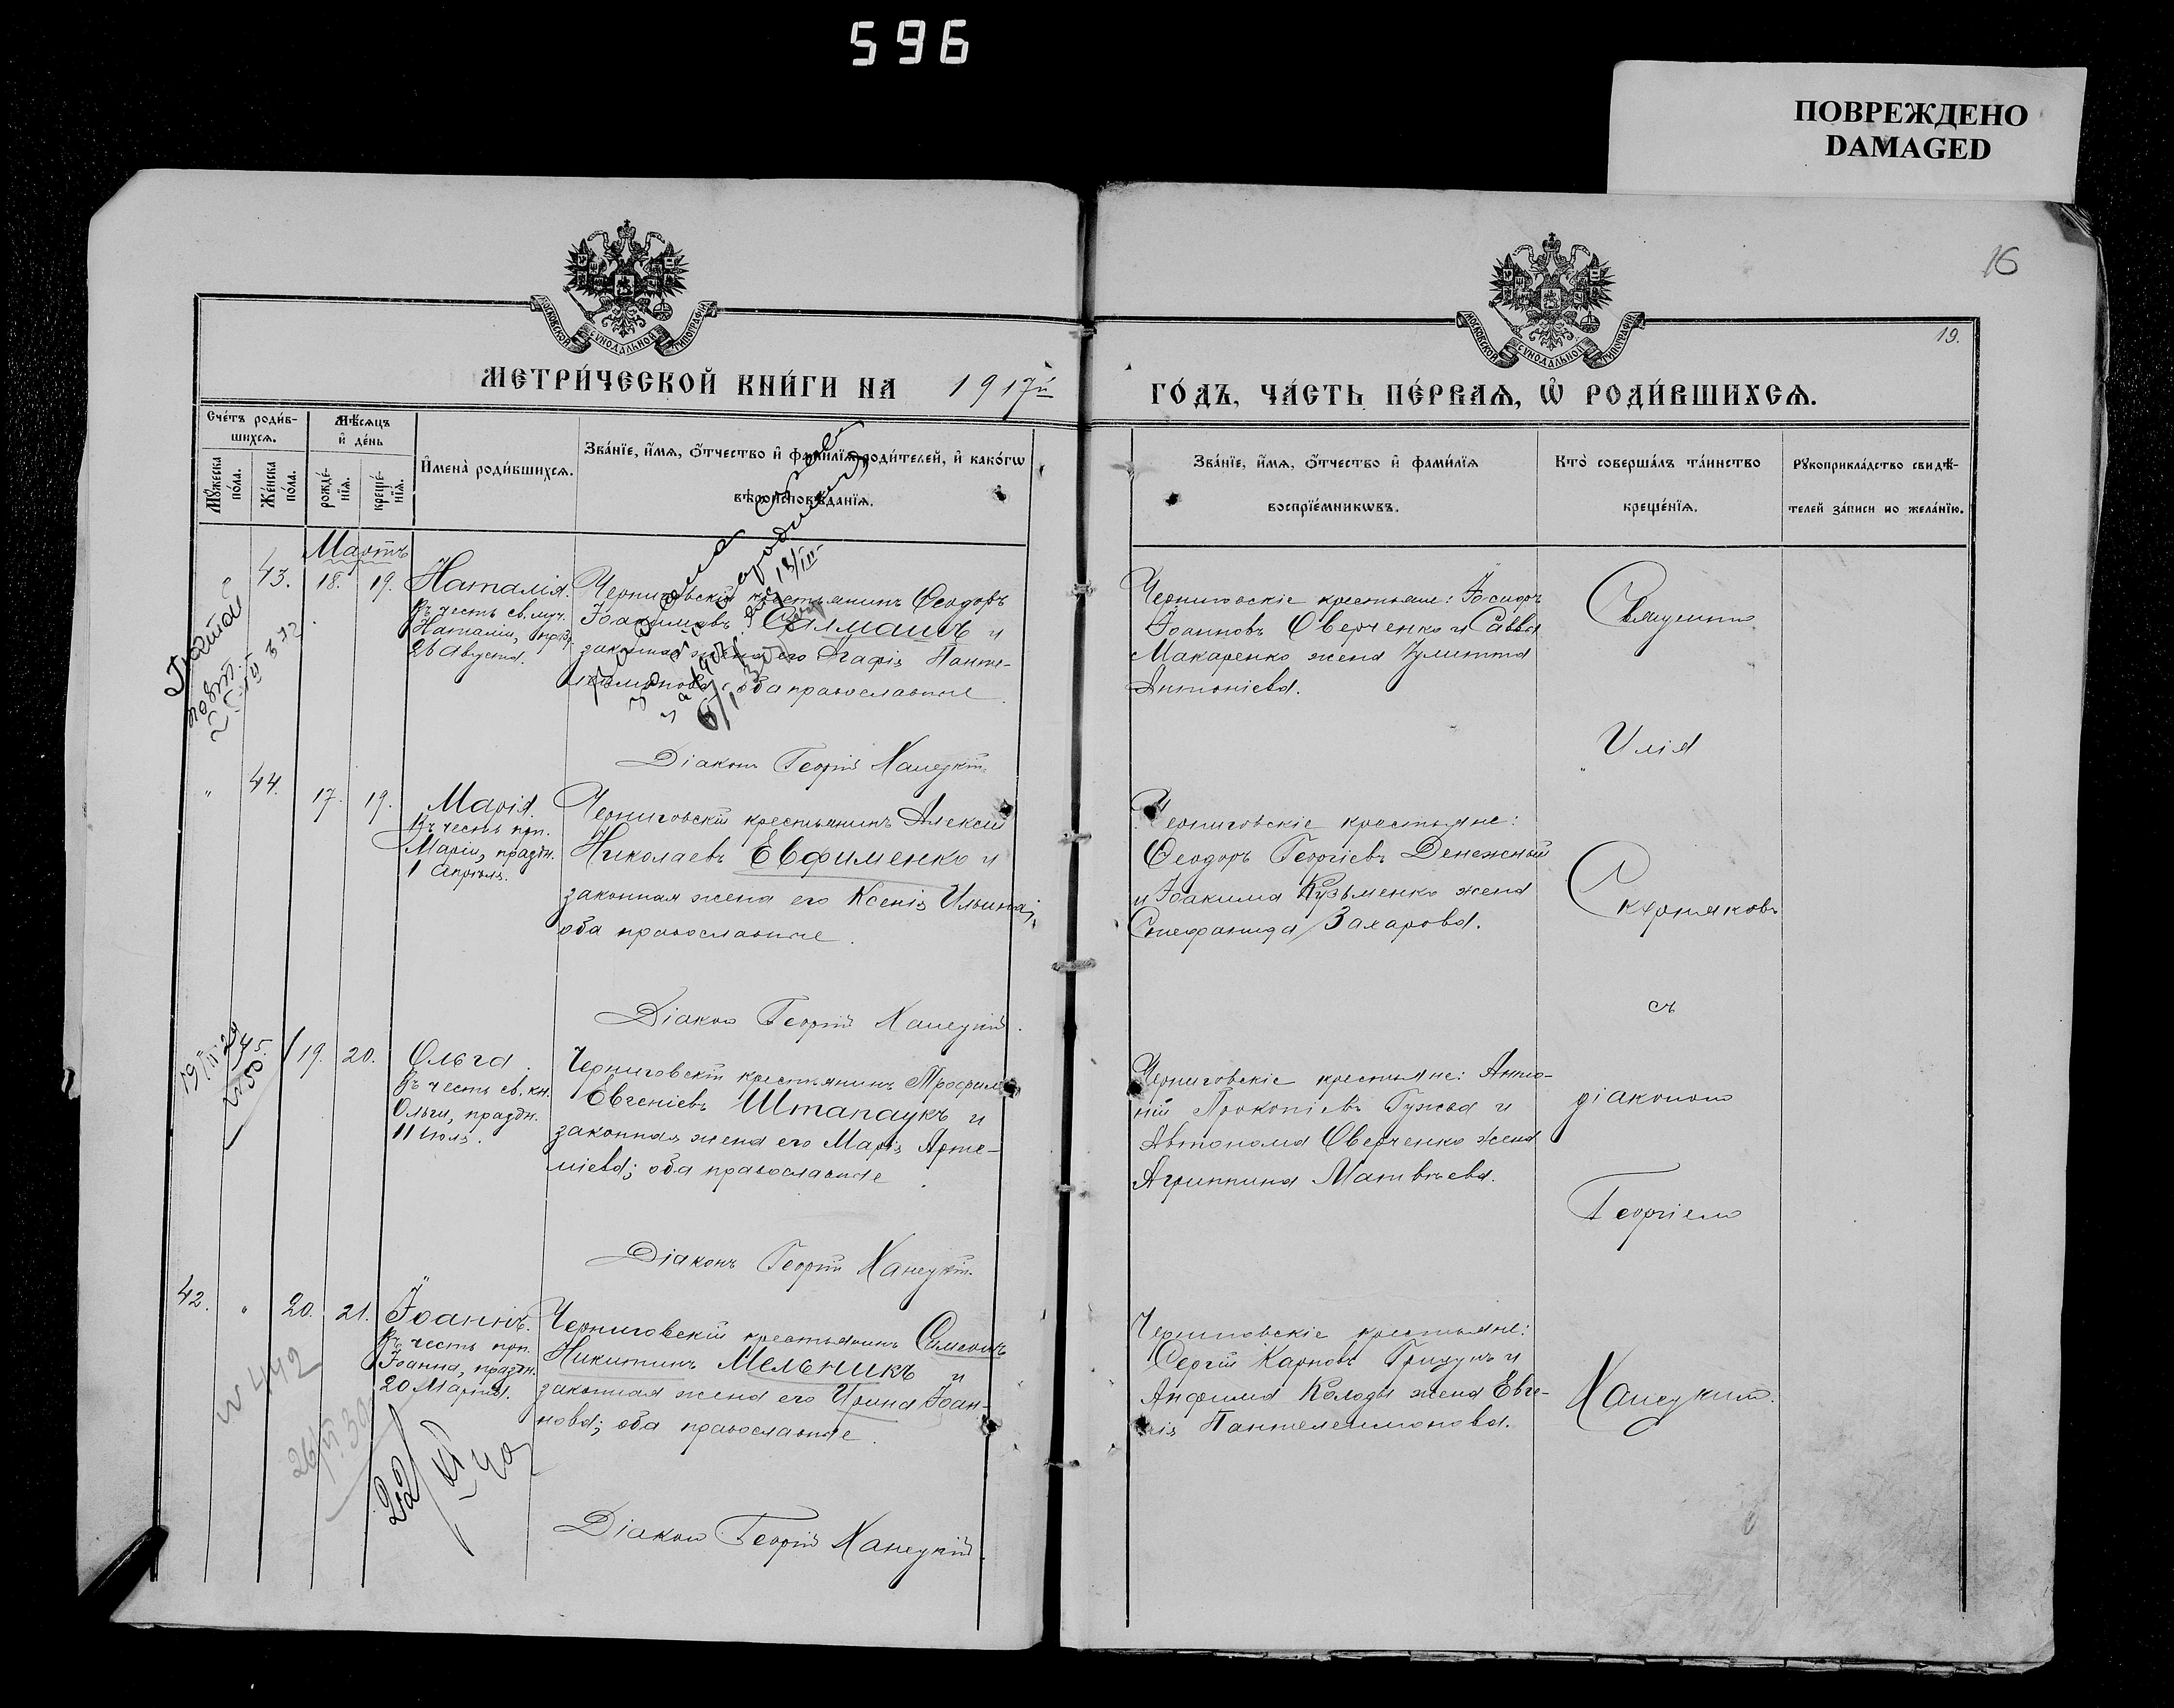 596
ПОВРЕЖДЕНО
DAMAGED
16
19.
МОСКОВСКОЙ СѴНОДАЛЬНОЙ ТИПОГРАФІИ
МОСКОВСКОЙ СѴНОДАЛЬНОЙ ТИПОГРАФІИ
МЕТРИ́ЧЕСКОЙ КНИ́ГИ НА 1917й
ГО́ДЪ, ЧА́СТЬ ПЕ́РВАѦ, Ѽ РОДИ́ВШИХСѦ.
Сче́тъ роди́в-
шихсѧ.
Мꙋ́жеска по́ла.
Же́нска по́ла.
Мѣ́сѧцъ
и҆ де́нь
рожде́-
нїѧ.
креще́-
нїѧ.
И҆мена̀ роди́вшихсѧ.
Зва́нїе, и҆́мѧ, ѻ҆́тчество и҆ фами́лїѧ роди́телей, и҆ како́гѡ
вѣроисповѣ́данїѧ.
Зва́нїе, и҆́мѧ, ѻ҆́тчество и҆ фами́лїѧ
воспрїе́мникѡвъ.
Кто̀ соверша́лъ та́инство
креще́нїѧ.
Рꙋкоприкла́дство свидѣ́-
телей за́писи по жела́нїю.
Мартъ
43. 18. 19. Наталія.
Въ честь св. муч.
Наталіи, празд.
26 Августа.
Черниговскій крестьянинъ Ѳеодоръ
Іоакимовъ Салманъ и
законная жена его Агафія Панте-
леимонова; оба православные.
Діаконъ Георгій Ханецкій.
Черниговскіе крестьяне: Исидоръ
Іоанновъ Оверченко и Савва
Макаренко жена Іулитта
Антоніева.
" 44. 17. 19. Марія.
Въ честь прп.
Маріи, праздн.
1 Апрѣля.
Черниговскій крестьянинъ Алексій
Николаевъ Евфименко и
законная жена его Ксенія Ильина;
оба православные.
Діаконъ Георгій Ханецкій.
Черниговскіе крестьяне:
Ѳеодоръ Георгіевъ Денежный
и Іоакима Кузьменко жена
Стефанида Захарова.
45. 19. 20. Ольга.
Въ честь св. кн.
Ольги, праздн.
11 Іюля.
Черниговскій крестьянинъ Трофимъ
Евгеніевъ Штапаукъ и
законная жена его Марія Арте-
міева; оба православные.
Діаконъ Георгій Ханецкій.
Черниговскіе крестьяне: Анто-
ній Прокопіевъ Гужва и
Автонома Оверченко жена
Агриппина Матвѣева.
42. " 20. 21. Іоаннъ.
Въ честь прп.
Іоанна, праздн.
20 Марта.
Черниговскій крестьянинъ Симеонъ
Никитинъ Мельникъ и
законная жена его Ирина Іоан-
нова; оба православные.
Діаконъ Георгій Ханецкій.
Черниговскіе крестьяне:
Сергій Карповъ Грицунъ и
Анфима Колоды жена Евге-
нія Пантелеимонова.
Священникъ
Илія
Скорняковъ
съ
діакономъ
Георгіемъ
Ханецкимъ.
N 442
22/XI 40